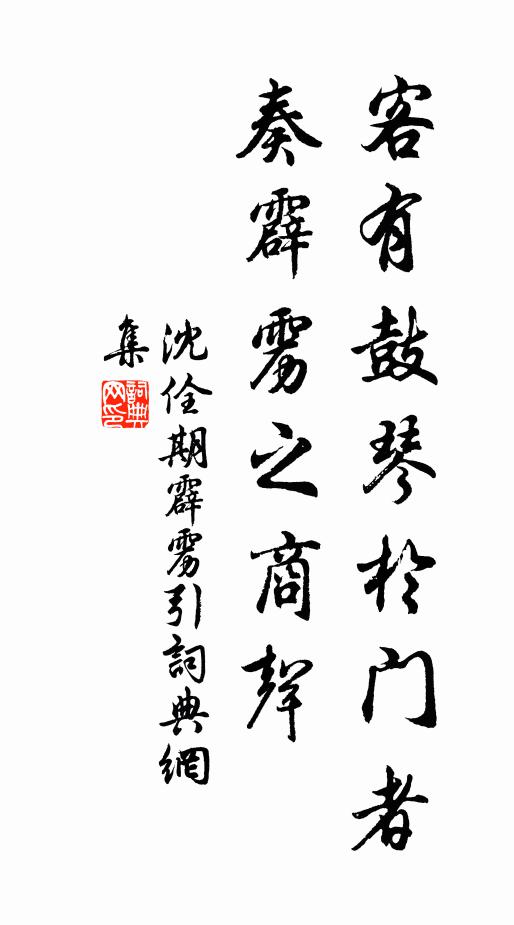 客有鼓琴於門者
奏霹雳之商聲
沈佺期霹雳引詞典網
集
詞典
网印